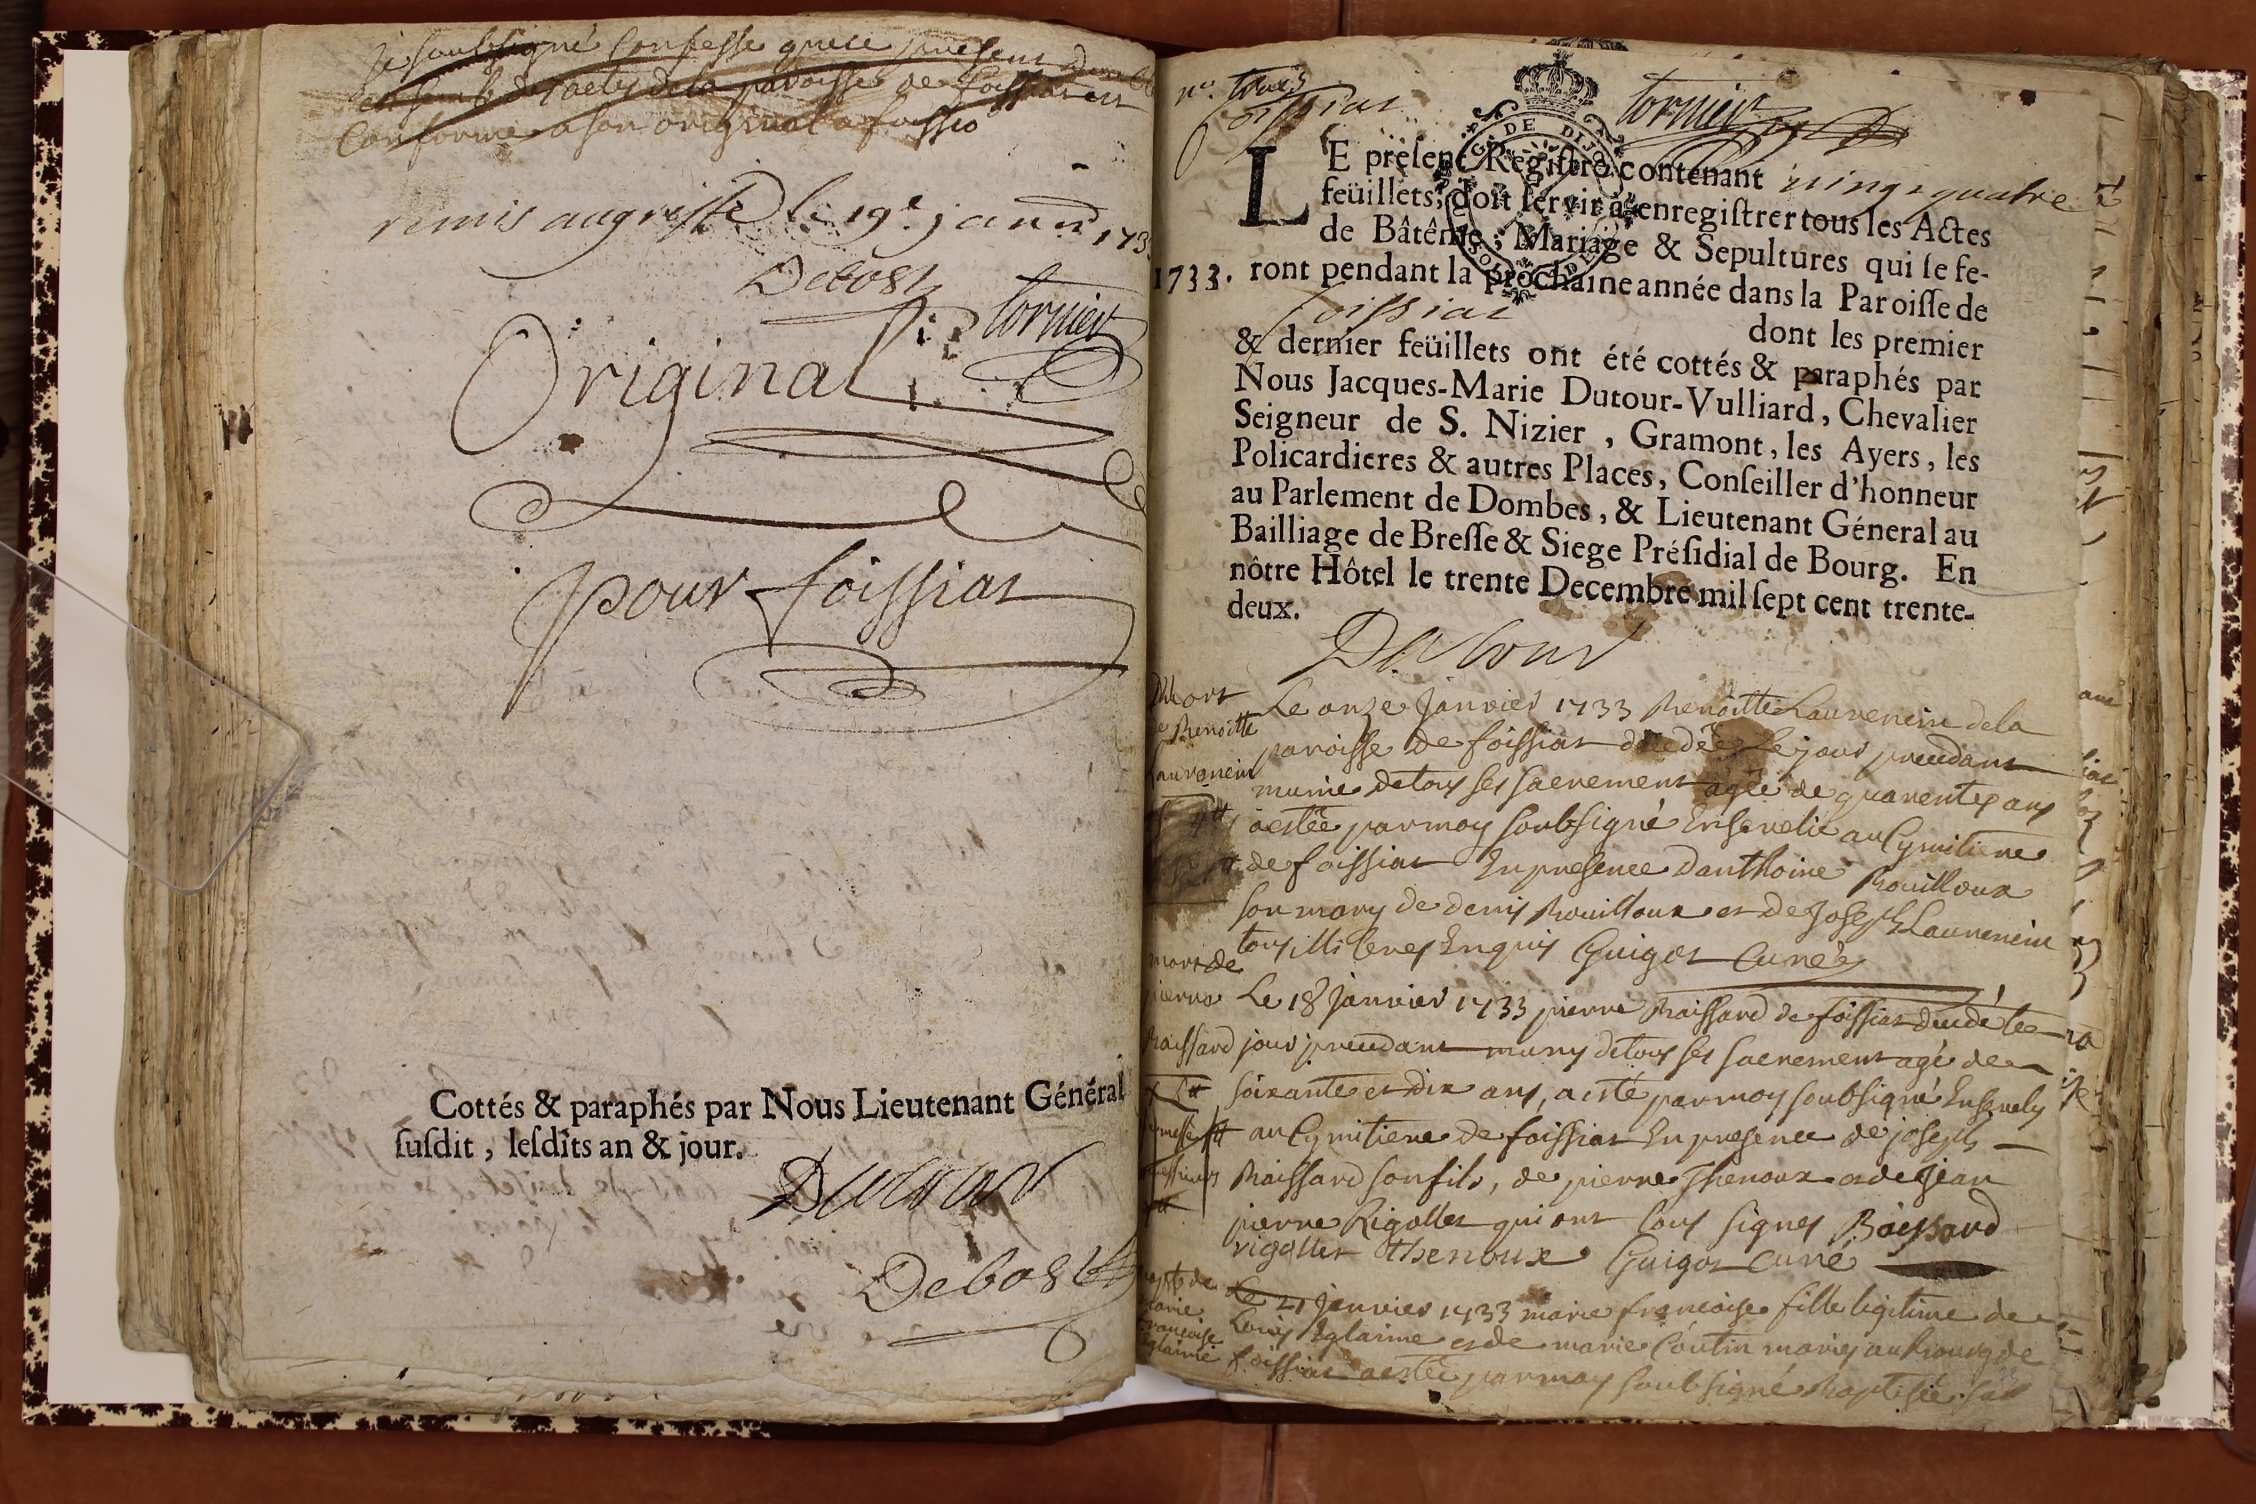 Je soubsigné Confesse que ce present double
Ensemble d'actes de la paroisse de foissiat est
Conforme a son original a foissia
remis au greffe le 19e janv. 173
Debost
tornier
Original
pour foissiat
Cottés & paraphés par Nous Lieutenant Général
susdit, lesdits an & jour.
Dutour
Debost
no. trois
foissiat
tornier
G. DE DIJON
LE present Registre contenant vingt quatre
feüillets, doit servir à enregistrer tous les Actes
de Bâtême, Mariage & Sepultures qui se fe-
1733. ront pendant la prochaine année dans la Paroisse de
foissiat dont les premier
& dernier feüillets ont été cottés & paraphés par
Nous Jacques-Marie Dutour-Vulliard, Chevalier
Seigneur de S. Nizier, Gramont, les Ayers, les
Policardieres & autres Places, Conseiller d'honneur
au Parlement de Dombes, & Lieutenant Géneral au
Bailliage de Bresse & Siege Présidial de Bourg. En
nôtre Hôtel le trente Decembre mil sept cent trente-
deux.
Dutour
Mort
de Benoitte
Laurencin
Le onze Janvier 1733 Benoitte Laurencin de la
paroisse de foissiat decedée le jour precedant
munie de tous ses sacrement agée de quarente ans
a estée par moy soubsigné Ensevelie au Cymitiere
de foissiat En presence d'anthoine Rouilloux
son mary de denis Rouilloux et de Joseph Laurencin
tous illiteres Enquis Guigot Curé
mort de
pierre
Raissard
Le 18 Janvier 1733 pierre Raissard de foissiat decedé le
jour precedant muny de tous ses sacrement agé de
soixante et dix ans, a esté par moy soubsigné Ensevely
au Cymitiere de foissiat En presence de joseph
Raissard son fils, de pierre Thenoux et de Jean
pierre Rigollet qui ont tous signes Raissard
rigollet thenoux Guigot Curé
bapt. de
marie
francoise
Eglaine
Le 21 Janvier 1733 marie francoise fille legitime de
Louis Eglaine et de marie Coutin maries au bourg de
foissiat a estée par moy soubsigné Baptisée